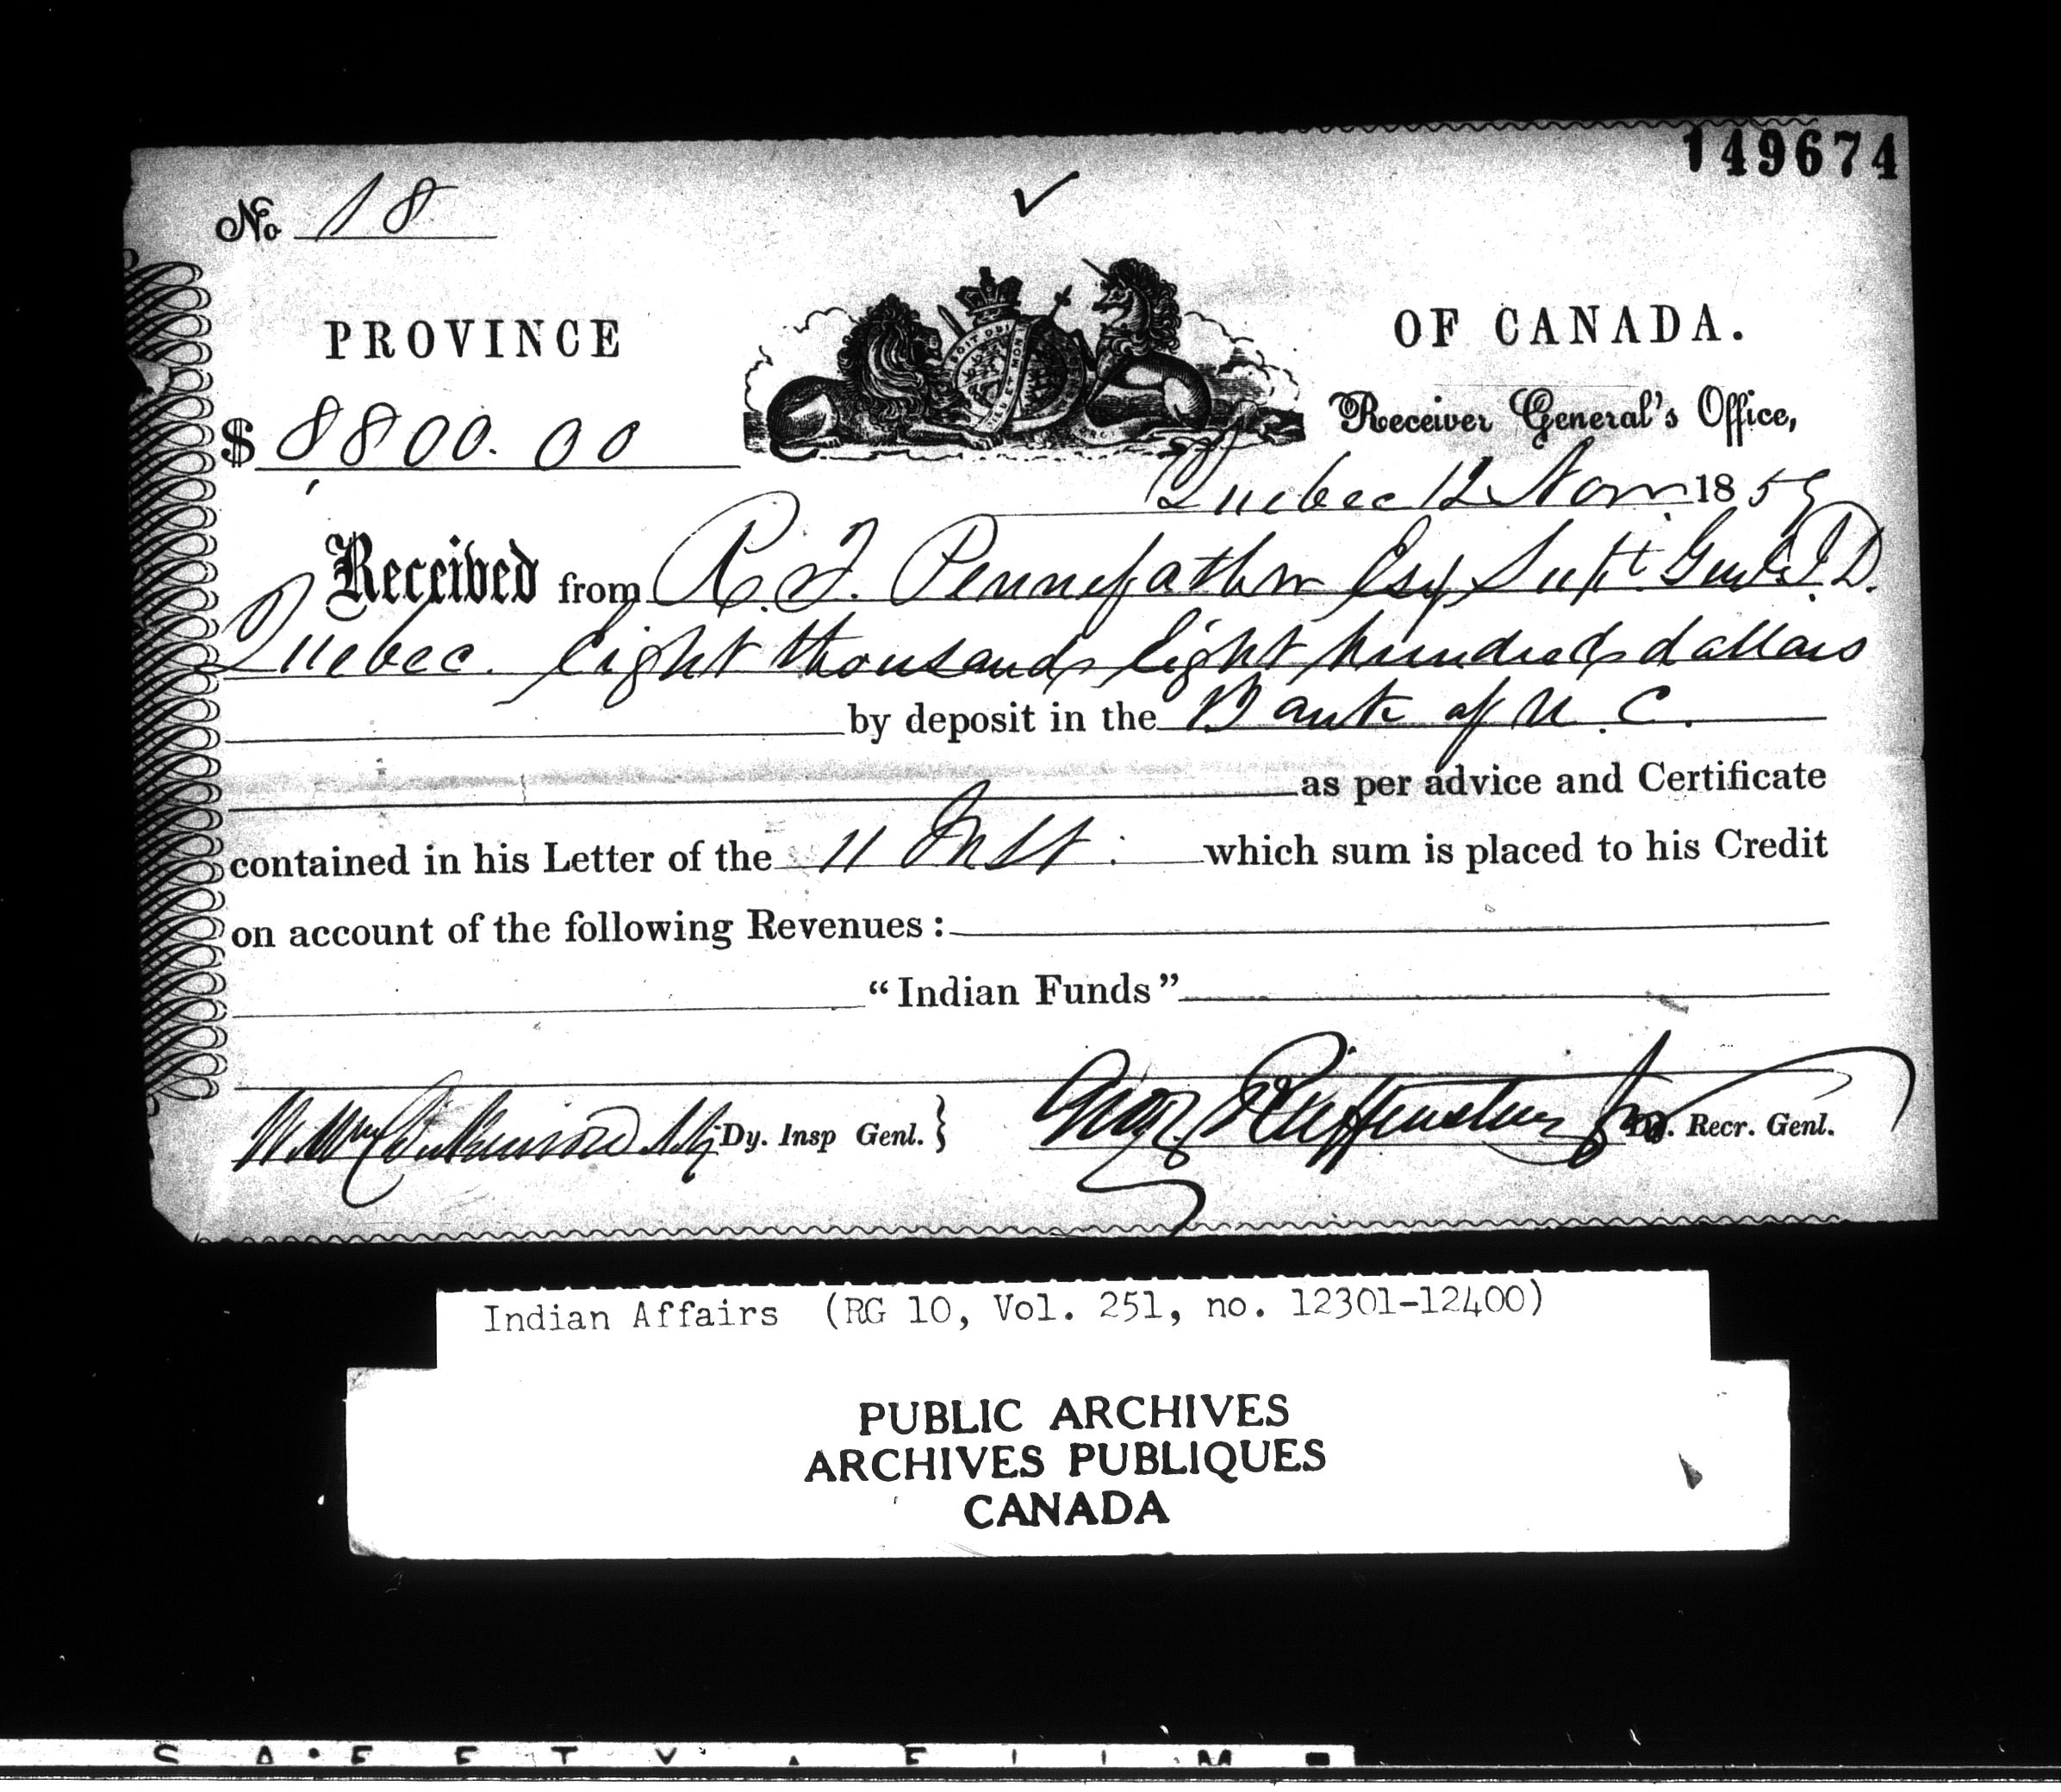 149674
No 18
PROVINCE OF CANADA.
$ 8800.00
Receiver General's Office,
Quebec 12 Novr. 1859
Received from R. T. Pennefather Esq Supt. Genl. I.D.
Quebec. Eight thousand Eight hundred dollars
by deposit in the Bank of U. C.
as per advice and Certificate
contained in his Letter of the 11 Inst. which sum is placed to his Credit
on account of the following Revenues:
"Indian Funds"
Dickinson Dy. Insp Genl. }
Geo. Reiffenstein Recr. Genl.
Indian Affairs (RG 10, Vol. 251, no. 12301-12400)
PUBLIC ARCHIVES
ARCHIVES PUBLIQUES
CANADA
SAFETY FILM